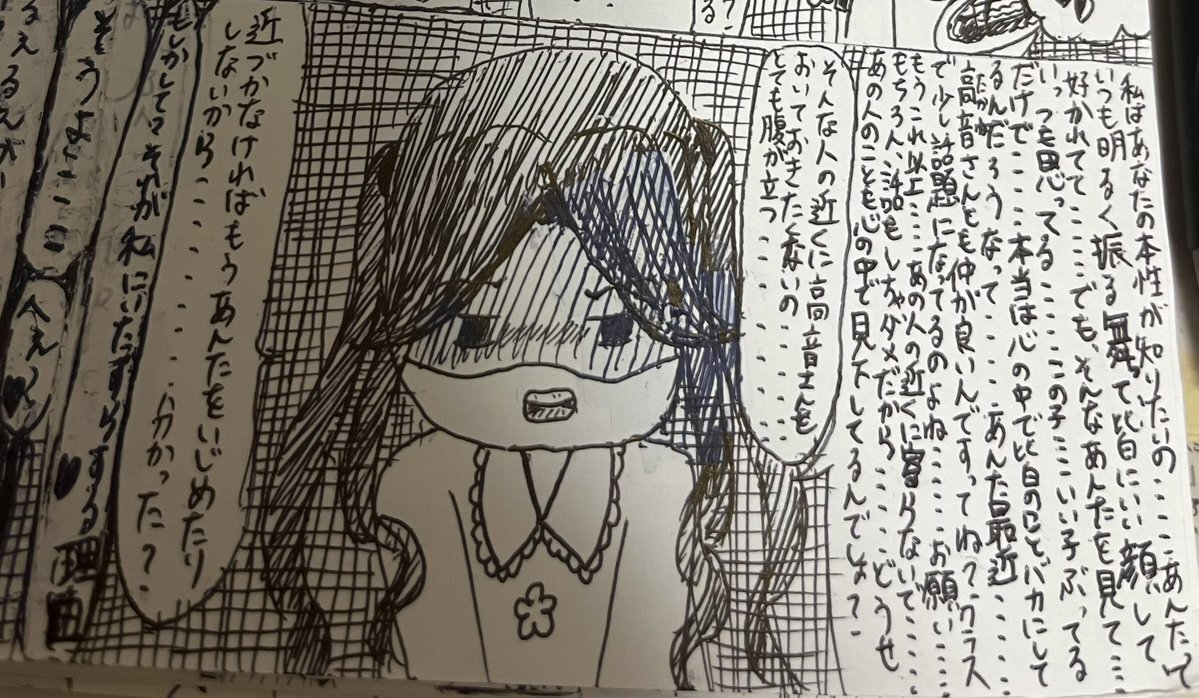 る?
私はあなたの本性が知りたいの……あんたって
いつも明るく振る舞って皆にいい顔して
好かれて……でも、そんなあんたを見て…
いっつも思ってる……この子……いい子ぶってる
だけで……本当は心の中で皆のことバカにして
るんだろうなって……あんた最近……
高音さんとも仲が良いんですってね?クラス
で少し話題になってるのよね……お願い…
もうこれ以上……あの人の近くに寄らないで……
もちろん、話もしちゃダメだから……どうせ
あの人のことも心の中で見下してるんでしょ?
そんな人の近くに高音さんを
おいておきたくないの……
とても腹が立つ……
近づかなければもうあんたをいじめたり
しないから……わかった?
もしかして、それが私にいたずらする
理由
そうよ……
へぇ